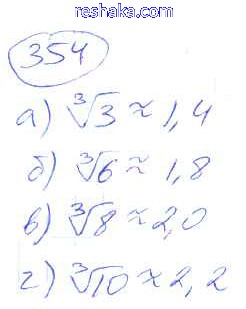 reshaka.com
354
а) ∛3 ≈ 1,4
б) ∛6 ≈ 1,8
в) ∛8 ≈ 2,0
г) ∛10 ≈ 2,2